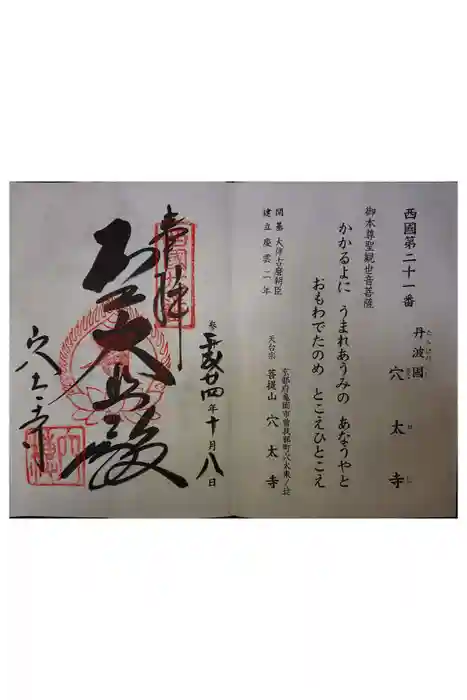 西國第二十一番
丹波國 穴太寺
たんばのくに あなおおじ
御本尊聖観世音菩薩
かかるよに うまれあうみの あなうやと
おもわでたのめ とこえひとこえ
開基 大伴古麿朝臣
建立 慶雲二年
京都府亀岡市曽我部町穴太東ノ辻
天台宗 菩提山 穴太寺
奉拝
参 平成廿四年十月八日
聖大悲殿
穴太寺